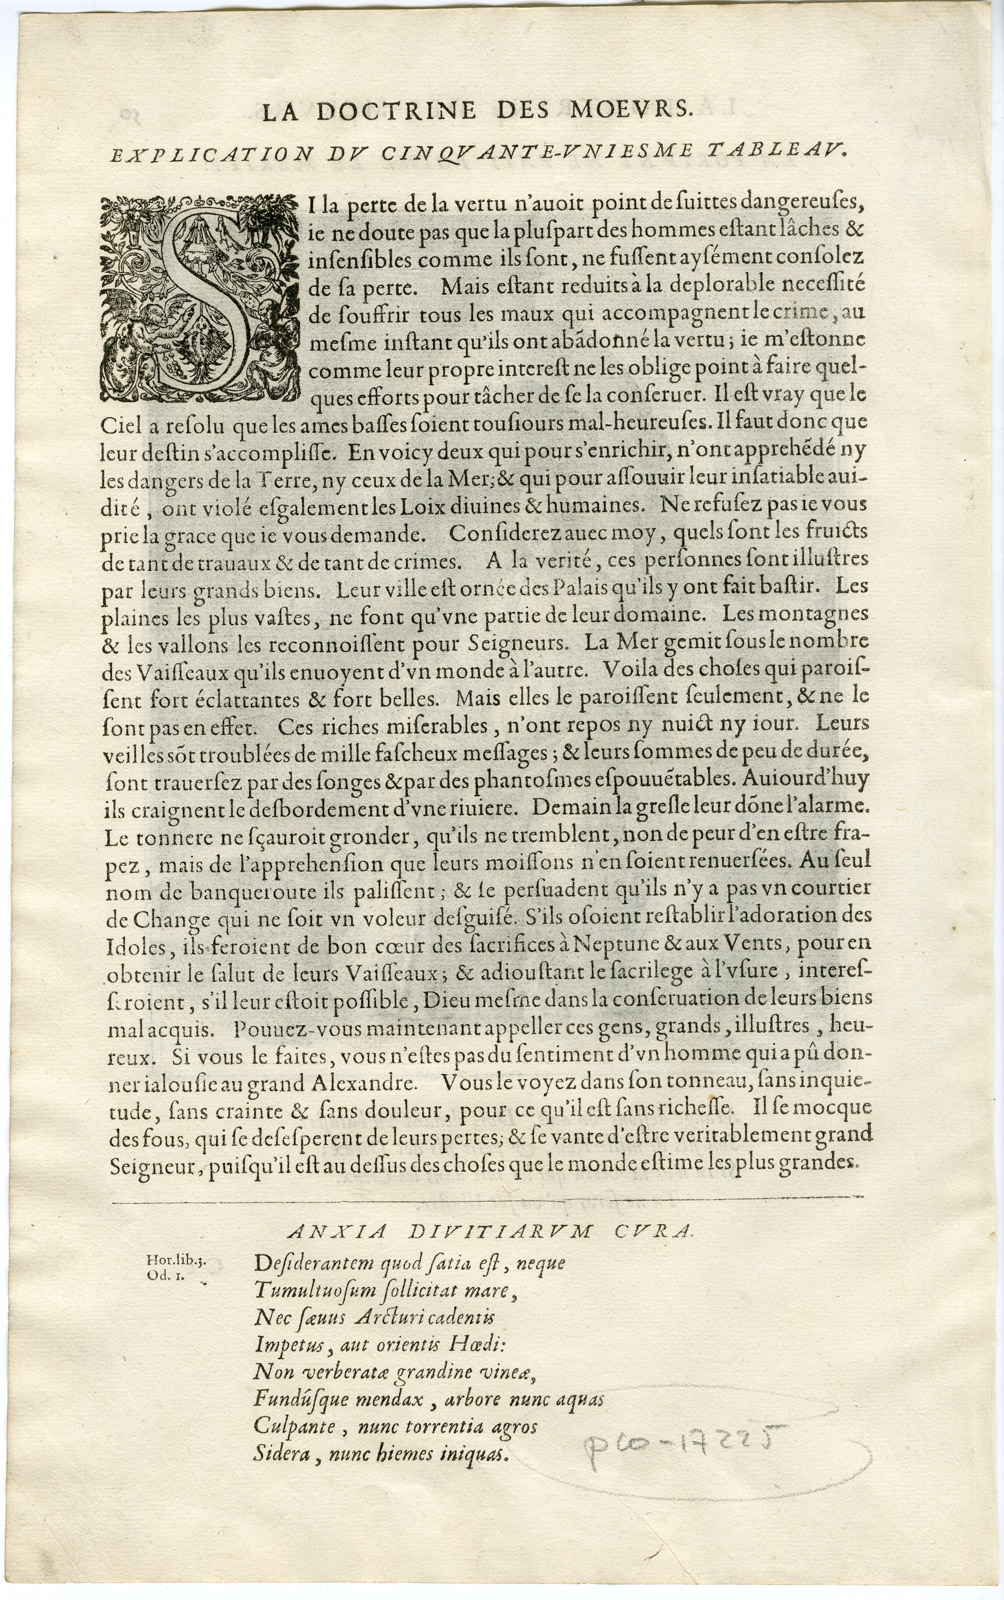 LA DOCTRINE DES MOEVRS.
EXPLICATION DV CINQVANTE-VNIESME TABLEAV.
SI la perte de la vertu n'auoit point de ſuittes dangereuſes,
ie ne doute pas que la pluſpart des hommes eſtant lâches &
inſenſibles comme ils ſont, ne fuſſent ayſément conſolez
de ſa perte. Mais eſtant reduits à la deplorable neceſſité
de ſouffrir tous les maux qui accompagnent le crime, au
meſme inſtant qu'ils ont abãdonné la vertu; ie m'eſtonne
comme leur propre intereſt ne les oblige point à faire quel-
ques efforts pour tâcher de ſe la conſeruer. Il eſt vray que le
Ciel a reſolu que les ames baſſes ſoient touſiours mal-heureuſes. Il faut donc que
leur deſtin s'accompliſſe. En voicy deux qui pour s'enrichir, n'ont apprehẽdé ny
les dangers de la Terre, ny ceux de la Mer; & qui pour aſſouuir leur inſatiable aui-
dité, ont violé eſgalement les Loix diuines & humaines. Ne refuſez pas ie vous
prie la grace que ie vous demande. Conſiderez auec moy, quels ſont les fruicts
de tant de trauaux & de tant de crimes. A la verité, ces perſonnes ſont illuſtres
par leurs grands biens. Leur ville eſt ornée des Palais qu'ils y ont fait baſtir. Les
plaines les plus vaſtes, ne font qu'vne partie de leur domaine. Les montagnes
& les vallons les reconnoiſſent pour Seigneurs. La Mer gemit ſous le nombre
des Vaiſſeaux qu'ils enuoyent d'vn monde à l'autre. Voila des choſes qui paroiſ-
ſent fort éclattantes & fort belles. Mais elles le paroiſſent ſeulement, & ne le
ſont pas en effet. Ces riches miſerables, n'ont repos ny nuict ny iour. Leurs
veilles sõt troublées de mille faſcheux meſſages; & leurs ſommes de peu de durée,
ſont trauerſez par des ſonges & par des phantoſmes eſpouuẽtables. Auiourd'huy
ils craignent le deſbordement d'vne riuiere. Demain la greſle leur dõne l'alarme.
Le tonnere ne ſçauroit gronder, qu'ils ne tremblent, non de peur d'en eſtre fra-
pez, mais de l'apprehenſion que leurs moiſſons n'en ſoient renuerſées. Au ſeul
nom de banqueroute ils paliſſent; & ſe perſuadent qu'ils n'y a pas vn courtier
de Change qui ne ſoit vn voleur deſguiſé. S'ils oſoient reſtablir l'adoration des
Idoles, ils feroient de bon cœur des ſacrifices à Neptune & aux Vents, pour en
obtenir le ſalut de leurs Vaiſſeaux; & adiouſtant le ſacrilege à l'vſure, intereſ-
ſeroient, s'il leur eſtoit poſſible, Dieu meſme dans la conſeruation de leurs biens
mal acquis. Pouuez-vous maintenant appeller ces gens, grands, illuſtres, heu-
reux. Si vous le faites, vous n'eſtes pas du ſentiment d'vn homme qui a pû don-
ner ialouſie au grand Alexandre. Vous le voyez dans ſon tonneau, ſans inquie-
tude, ſans crainte & ſans douleur, pour ce qu'il eſt ſans richeſſe. Il ſe mocque
des fous, qui ſe deſeſperent de leurs pertes; & ſe vante d'eſtre veritablement grand
Seigneur, puiſqu'il eſt au deſſus des choſes que le monde eſtime les plus grandes.
ANXIA DIVITIARVM CVRA.
Hor. lib. 3.
Od. 1.
Deſiderantem quod ſatis eſt, neque
Tumultuoſum ſollicitat mare,
Nec ſæuus Arcturi cadentis
Impetus, aut orientis Hœdi:
Non verberatæ grandine vineæ,
Fundúſque mendax, arbore nunc aquas
Culpante, nunc torrentia agros
Sidera, nunc hiemes iniquas.
pco-17225